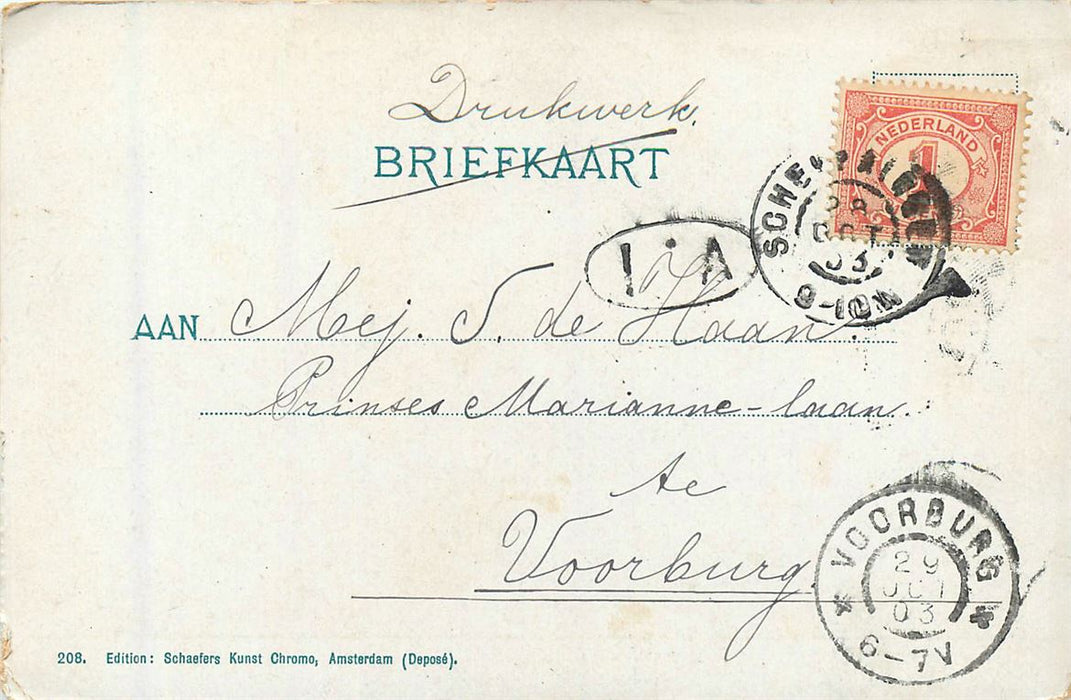 Drukwerk.
BRIEFKAART
NEDERLAND
1
SCHEVENINGEN
28
OCT
03
9-10N
1·A
AAN Mej. S. de Haan.
Prinses Marianne-laan.
te
Voorburg
* VOORBURG *
29
OCT
03
6-7V
208. Edition: Schaefers Kunst Chromo, Amsterdam (Deposé).